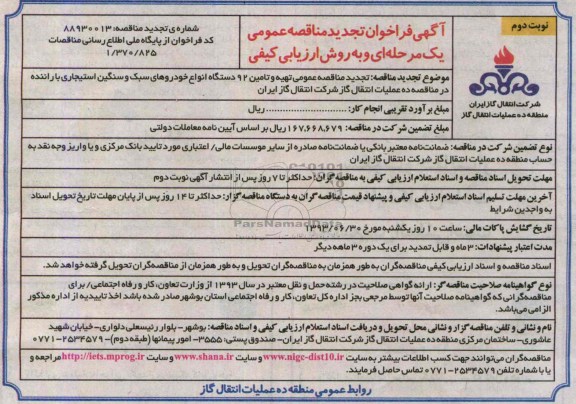 نوبت دوم
آگهی فراخوان تجدید مناقصه عمومی
یک مرحله‌ای و به روش ارزیابی کیفی
شماره‌ی تجدید مناقصه: ۸۸۹۳۰۰۱۳
کد فراخوان از پایگاه ملی اطلاع رسانی مناقصات
۱/۳۷۰/۸۲۵
شرکت انتقال گاز ایران
منطقه ده عملیات انتقال گاز
موضوع تجدید مناقصه: تجدید مناقصه عمومی تهیه و تامین ۹۲ دستگاه انواع خودروهای سبک و سنگین استیجاری با راننده
در مناقصه ده عملیات انتقال گاز شرکت انتقال گاز ایران
مبلغ برآورد تقریبی انجام کار: ........................... ریال
مبلغ تضمین شرکت در مناقصه: ۱۶۷,۶۶۸,۶۷۹ ریال بر اساس آیین نامه معاملات دولتی
نوع تضمین شرکت در مناقصه: ضمانت‌نامه معتبر بانکی یا ضمانت‌نامه صادره از سایر موسسات مالی/ اعتباری مورد تایید بانک مرکزی و یا واریز وجه نقد به
حساب منطقه ده عملیات انتقال گاز شرکت انتقال گاز ایران
مهلت تحویل اسناد مناقصه و اسناد استعلام ارزیابی کیفی به مناقصه گران: حداکثر تا ۷ روز پس از انتشار آگهی نوبت دوم
آخرین مهلت تسلیم اسناد استعلام ارزیابی کیفی و پیشنهاد قیمت مناقصه گران به دستگاه مناقصه گزار: حداکثر تا ۱۴ روز پس از پایان مهلت تاریخ تحویل اسناد
به واجدین شرایط
تاریخ گشایش پاکات مالی: ساعت ۱۰ روز یکشنبه مورخ ۱۳۹۳/۰۶/۳۰
مدت اعتبار پیشنهادات: ۳ ماه و قابل تمدید برای یک دوره ۳ ماهه دیگر
اسناد مناقصه و اسناد ارزیابی کیفی مناقصه‌گران به طور همزمان به مناقصه‌گران تحویل و به طور همزمان از مناقصه‌گران تحویل گرفته خواهد شد.
نوع گواهینامه صلاحیت مناقصه گر: ارائه گواهی صلاحیت در رشته حمل و نقل معتبر در سال ۱۳۹۳ از وزارت تعاون، کار و رفاه اجتماعی/ برای
مناقصه‌گرانی که گواهینامه صلاحیت آنها توسط مرجعی بجز اداره کل تعاون، کار و رفاه اجتماعی استان بوشهر صادر شده باشد اخذ تاییدیه از اداره مذکور
الزامی می‌باشد.
نام و نشانی و تلفن مناقصه گزار و نشانی محل تحویل و دریافت اسناد استعلام ارزیابی کیفی و اسناد مناقصه: بوشهر- بلوار رئیسعلی دلواری- خیابان شهید
عاشوری- ساختمان مرکزی منطقه ده عملیات انتقال گاز شرکت انتقال گاز ایران- صندوق پستی: ۳۵۵۵- امور پیمانها (طبقه دوم)- ۲۵۳۴۵۷۹-۰۷۷۱
مناقصه‌گران می‌توانند جهت کسب اطلاعات بیشتر به سایت www.nigc-dist10.ir و سایت www.shana.ir و سایت http://iets.mprog.ir مراجعه و
یا با شماره تلفن ۲۵۳۴۵۷۹-۰۷۷۱ تماس حاصل فرمایند.
روابط عمومی منطقه ده عملیات انتقال گاز
ParsNamadData